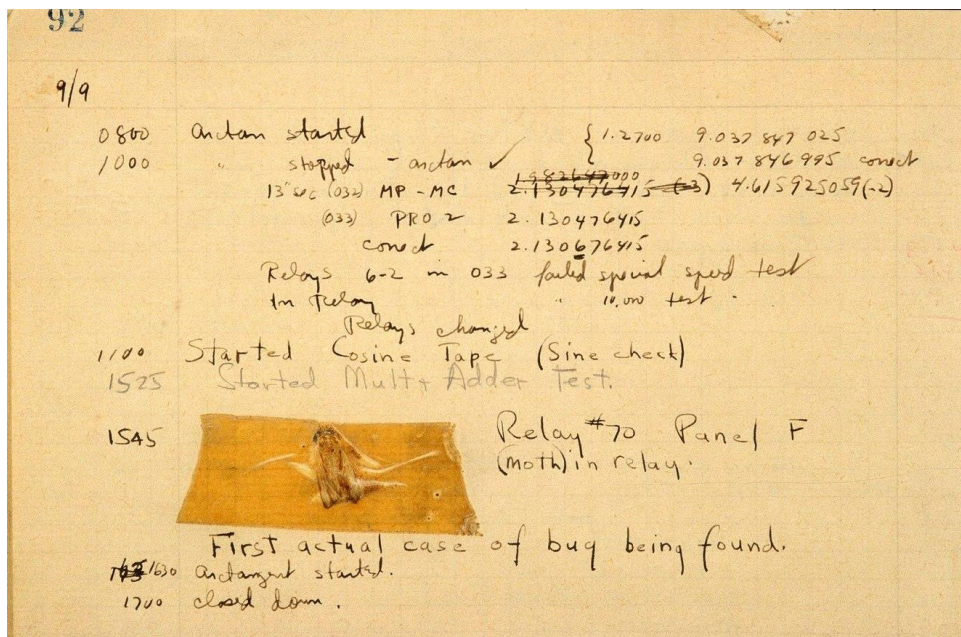 92
9/9
0800 arctan started { 1.2700 9.037 847 025
1000 " stopped - arctan ✓ 9.037 846 995 conect
13" sec (032) MP - MC 2.130476415 (-3) 4.615925059(-2)
(033) PRO 2 2.130476415
conect 2.130676415
Relays 6-2 in 033 failed special speed test
In Relay " 10,000 test .
Relays changed
1100 Started Cosine Tape (Sine check)
1525 Started Mult + Adder Test.
1545 Relay #70 Panel F
(moth) in relay.
First actual case of bug being found.
1630 arctangent started.
1700 closed down .